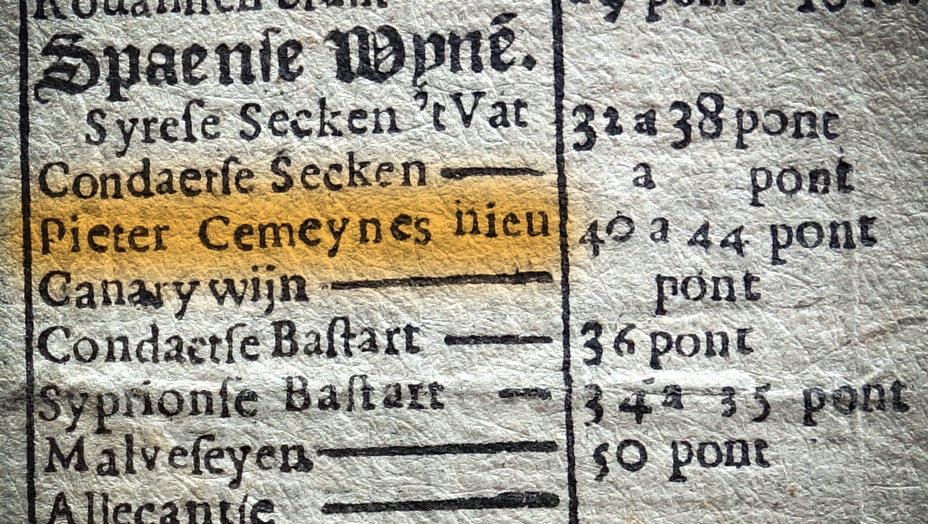 Spaenſe Wyné.
Syreſe Secken 't Vat 32 a 38 pont
Condaetſe Secken — a pont
Pieter Cemeynes nieu 40 a 44 pont
Canary wijn — pont
Condaetſe Baſtart — 36 pont
Syprionſe Baſtart — 34 a 35 pont
Malveſeyen — 50 pont
Allecantſe —